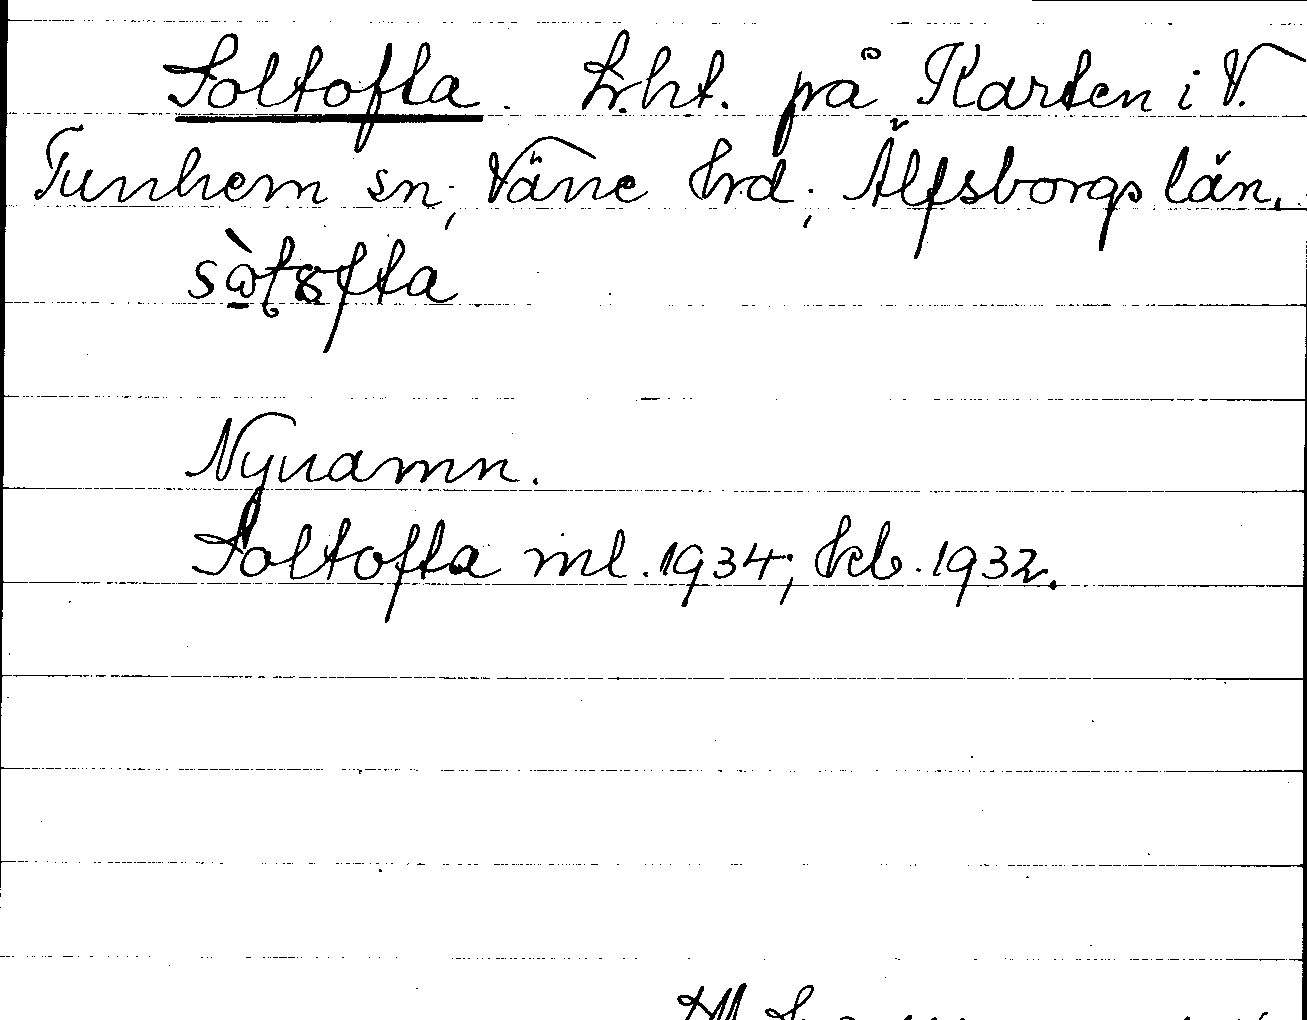 Soltofta. Lht. på Karten i V.
Tunhem sn; Väne hrd; Älfsborgs län.
Nynamn.
Soltofta ml. 1934; kb. 1932.